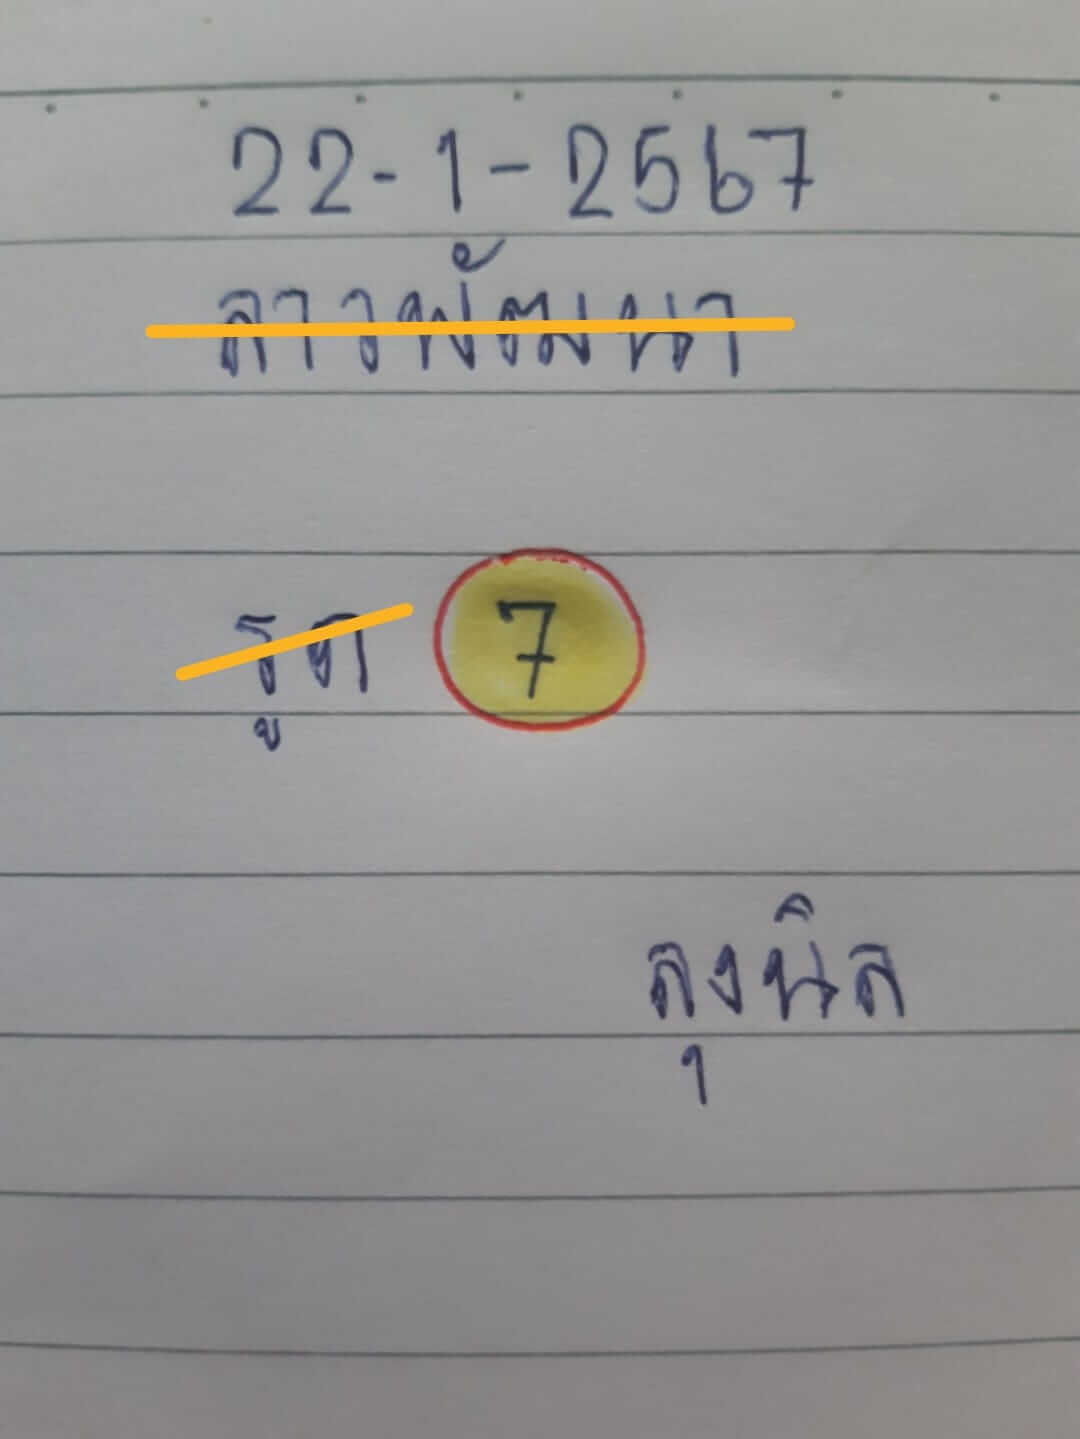 22-1-2567
ลาวพัฒนา
รูด 7
ลุงนิล